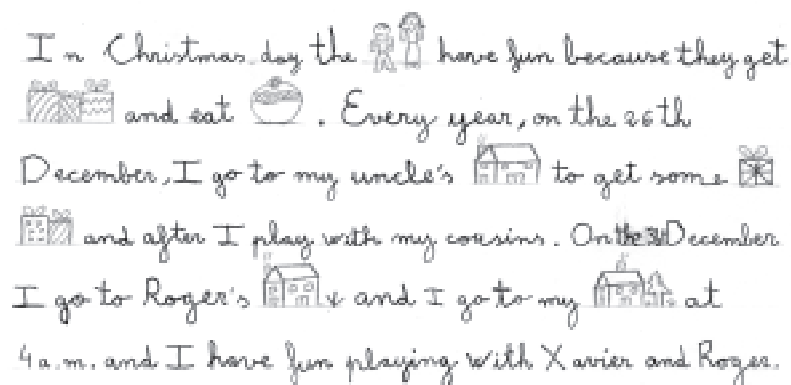 In Christmas day the have fun because they get
and eat . Every year, on the 26th
December, I go to my uncle's to get some
and after I play with my cousins. On the 31 December
I go to Roger's and I go to my at
4 a.m. and I have fun playing with Xavier and Roger.